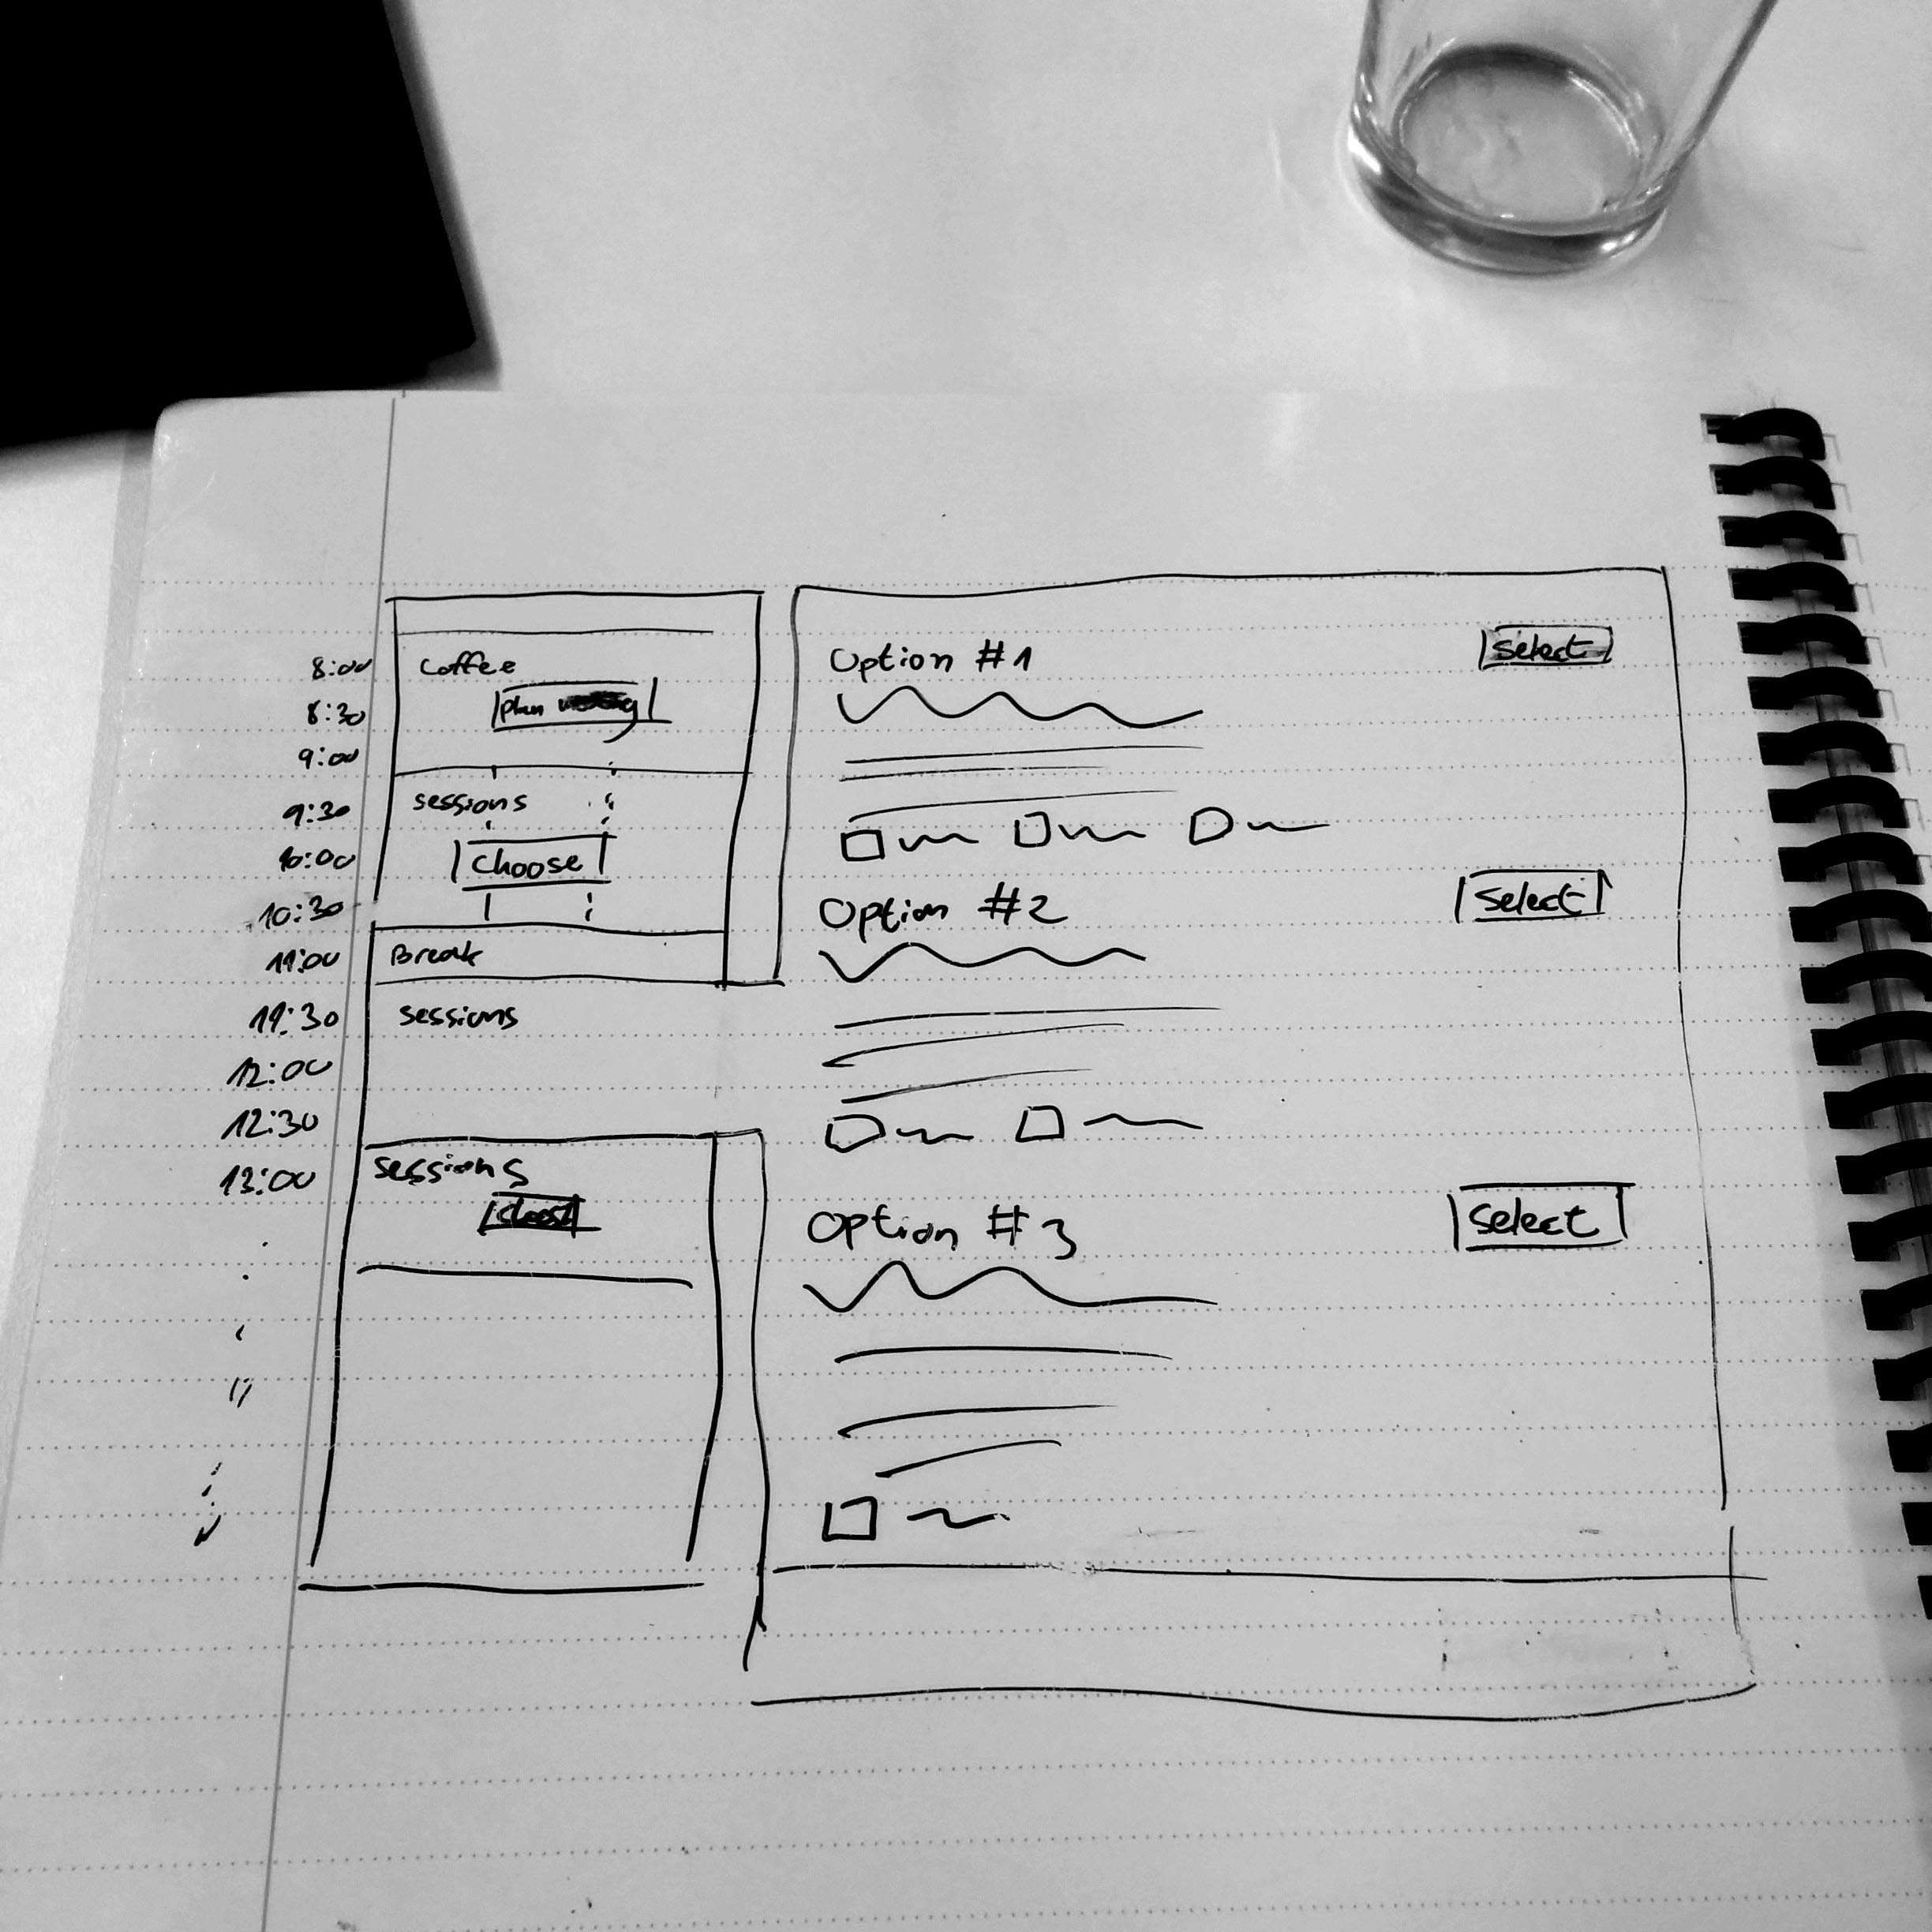 8:00
8:30
9:00
9:30
10:00
10:30
11:00
11:30
12:00
12:30
13:00
Coffee
plan
sessions
choose
Break
sessions
sessions
choose
Option #1
select
Option #2
select
Option #3
select